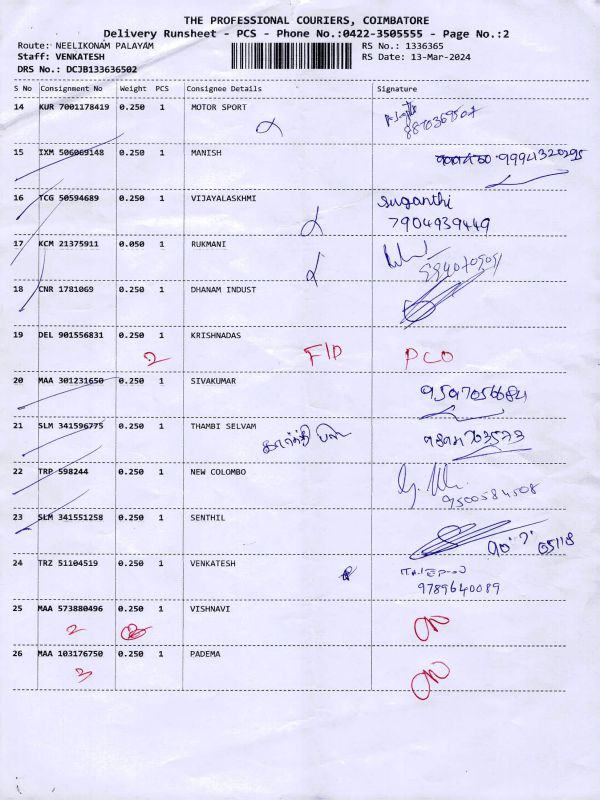 THE PROFESSIONAL COURIERS, COIMBATORE
Delivery Runsheet - PCS - Phone No.:0422-3505555 - Page No.:2
Route: NEELIKONAM PALAYAM
RS No.: 1336365
Staff: VENKATESH
RS Date: 13-Mar-2024
DRS No.: DCJB133636502
S No Consignment No Weight PCS Consignee Details Signature
14 KUR 7001178419 0.250 1 MOTOR SPORT
8870369507
15 IXM 506069148 0.250 1 MANISH
16 TCG 50594689 0.250 1 VIJAYALASKHMI Suganthi
7904939449
17 KCM 21375911 0.050 1 RUKMANI
18 CNR 1781069 0.250 1 DHANAM INDUST
19 DEL 901556831 0.250 1 KRISHNADAS
2 F/D PCO
20 MAA 301231650 0.250 1 SIVAKUMAR
9597056684
21 SLM 341596775 0.250 1 THAMBI SELVAM
22 TRP 598244 0.250 1 NEW COLOMBO
9500584508
23 SLM 341551258 0.250 1 SENTHIL
24 TRZ 51104519 0.250 1 VENKATESH
9789640089
25 MAA 573880496 0.250 1 VISHNAVI
2
26 MAA 103176750 0.250 1 PADEMA
3